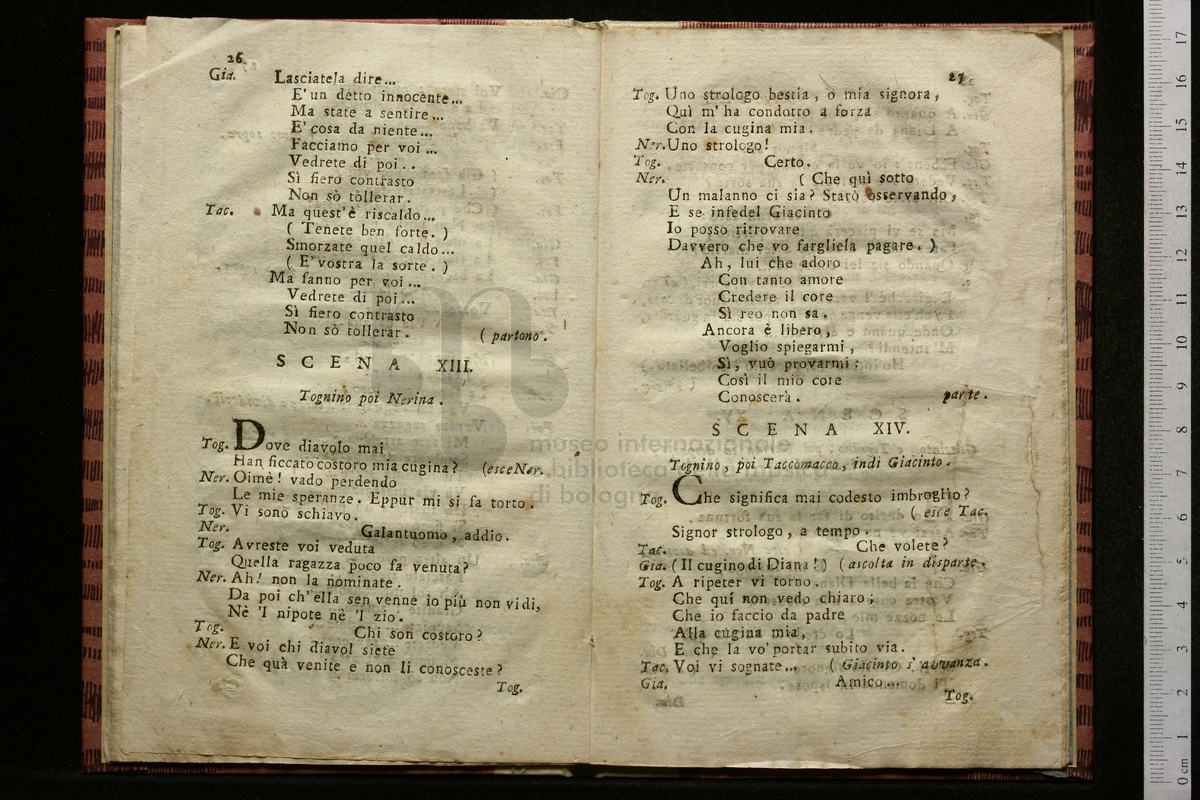 26
Gia. Lasciatela dire...
E' un detto innocente...
Ma state a sentire...
E' cosa da niente...
Facciamo per voi...
Vedrete di poi..
Sì fiero contrasto
Non sò tollerar.
Tac. Ma quest'è riscaldo...
( Tenete ben forte. )
Smorzate quel caldo...
( E' vostra la sorte. )
Ma fanno per voi...
Vedrete di poi...
Sì fiero contrasto
Non sò tollerar. ( partono.
SCENA XIII.
Tognino poi Nerina.
Tog. Dove diavolo mai
Han ficcato costoro mia cugina? (esce Ner.
Ner. Oimè! vado perdendo
Le mie speranze. Eppur mi si fa torto.
Tog. Vi sono schiavo.
Ner. Galantuomo, addio.
Tog. Avreste voi veduta
Quella ragazza poco fa venuta?
Ner. Ah! non la nominate.
Da poi ch'ella sen venne io più non vidi,
Nè 'l nipote nè 'l zio.
Tog. Chi son costoro?
Ner. E voi chi diavol siete
Che quà venite e non li conosceste?
Tog.
27
Tog. Uno strologo bestia, o mia signora,
Quì m'ha condotto a forza
Con la cugina mia.
Ner. Uno strologo!
Tog. Certo.
Ner. ( Che quì sotto
Un malanno ci sia? Starò osservando,
E se infedel Giacinto
Io posso ritrovare
Davvero che vo fargliela pagare. )
Ah, lui che adoro
Con tanto amore
Credere il core
Sì reo non sa.
Ancora è libero,
Voglio spiegarmi,
Sì, vuò provarmi:
Così il mio core
Conoscerà. parte.
SCENA XIV.
Tognino, poi Taccomacco, indi Giacinto.
Tog. Che significa mai codesto imbroglio?
( esce Tac.
Signor strologo, a tempo.
Tac. Che volete?
Gia. ( Il cugino di Diana! ) ( ascolta in disparte.
Tog. A ripeter vi torno.
Che quí non vedo chiaro;
Che io faccio da padre
Alla cugina mia,
E che la vo' portar subito via.
Tac. Voi vi sognate... ( Giacinto s'avvanza.
Gia. Amico...
Tog.
museo internazionale
e biblioteca della musica
di bologna
0 cm 1 2 3 4 5 6 7 8 9 10 11 12 13 14 15 16 17